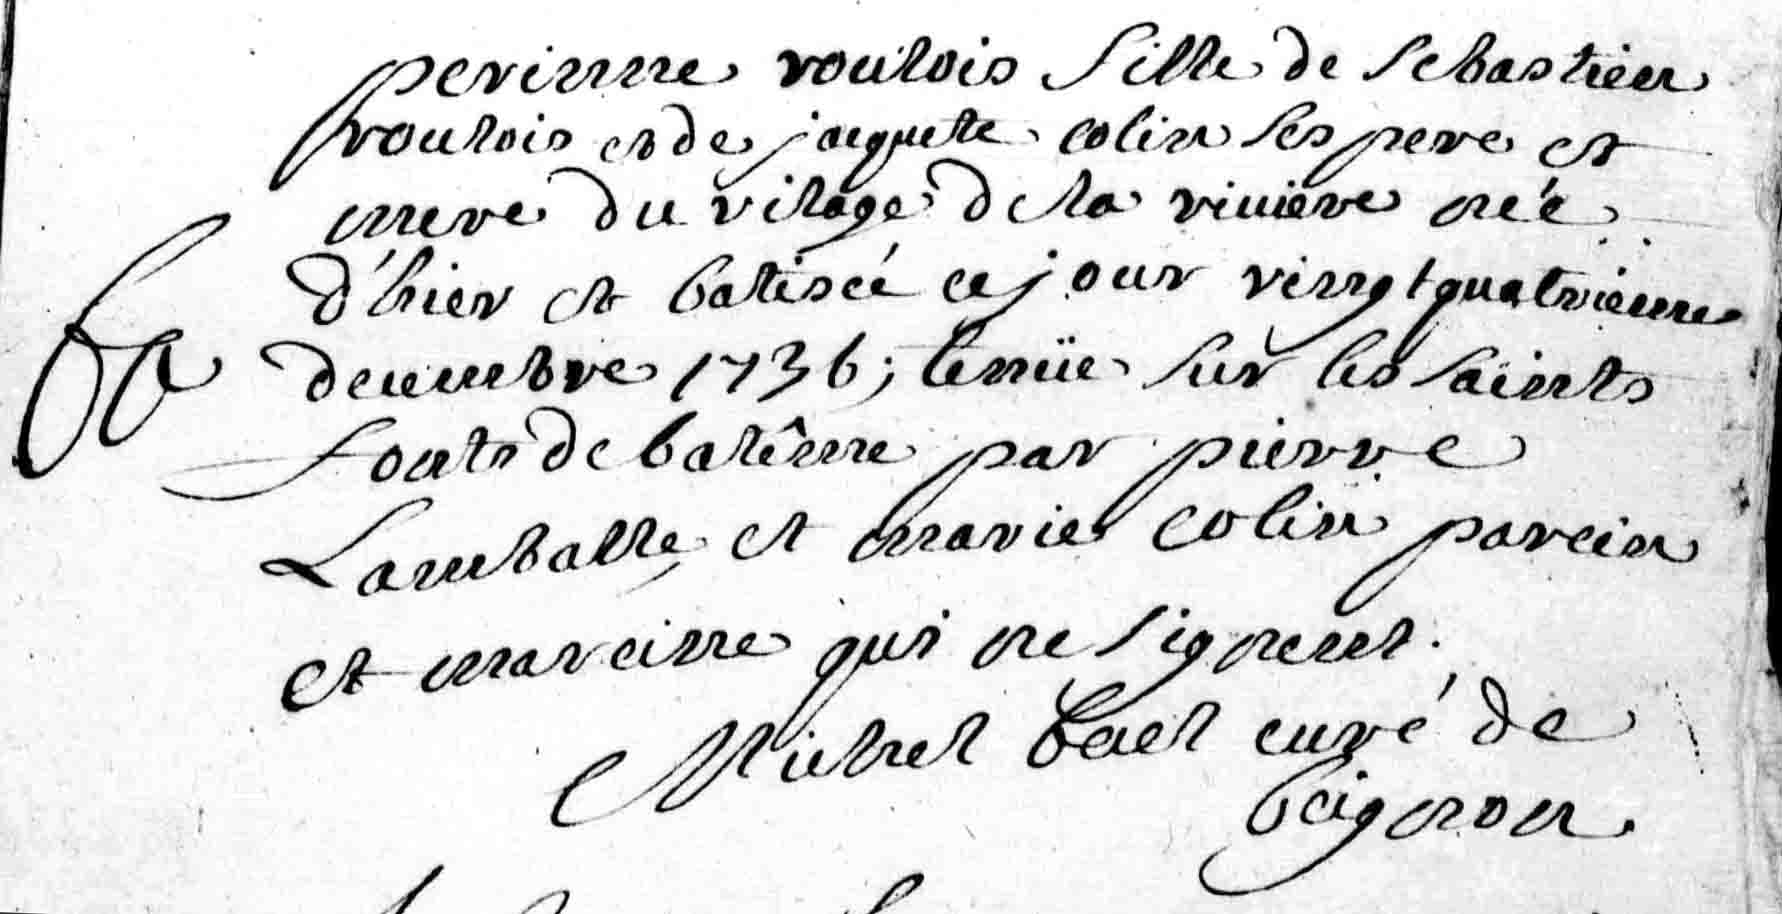 perinne roulois fille de sebastien
roulois et de jaquete colin ses pere et
mere du vilage de la riuiere née
d'hier et batisée ce jour vingtquatrieme
decembre 1736; tenüe sur les saints
fonts de batême par pierre
Lamballe et marie colin parein
et mareine qui ne signent.
ba
Michel curé de
beignon